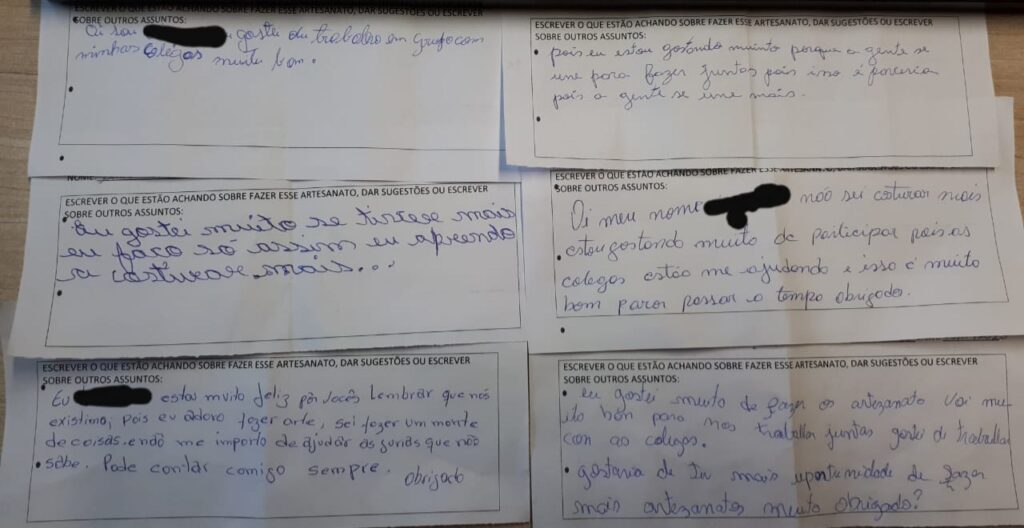 ESCREVER O QUE ESTÃO ACHANDO SOBRE FAZER ESSE ARTESANATO, DAR SUGESTÕES OU ESCREVER
SOBRE OUTROS ASSUNTOS:
Oi sou gostei du trabalho em grupo com
minhas colegas muito bom.
ESCREVER O QUE ESTÃO ACHANDO SOBRE FAZER ESSE ARTESANATO, DAR SUGESTÕES OU ESCREVER
SOBRE OUTROS ASSUNTOS:
pois eu estou gostando muinto porque a gente se
une para fazer juntas pois isso é parceria
pois a gente se une mais.
NOME:
ESCREVER O QUE ESTÃO ACHANDO SOBRE FAZER ESSE ARTESANATO, DAR SUGESTÕES OU ESCREVER
SOBRE OUTROS ASSUNTOS:
Eu gostei muito se tivese mais
eu faço só assim eu aprendo
a costurar mais...
ESCREVER O QUE ESTÃO ACHANDO SOBRE FAZER ESSE ARTESANATO, DAR SUGESTÕES OU ESCREVER
SOBRE OUTROS ASSUNTOS:
Oi meu nome não sei costurar mais
estou gostando muito de participar pois as
colegas estão me ajudando e isso é muito
bom para passar o tempo obrigado.
ESCREVER O QUE ESTÃO ACHANDO SOBRE FAZER ESSE ARTESANATO, DAR SUGESTÕES OU ESCREVER
SOBRE OUTROS ASSUNTOS:
Eu estou muito feliz por vocês Lembrar que nós
existimo, pois eu adoro fazer arte, sei fazer um monte
de coisas. e não me importo de ajudar as gurias que não
sabe. Pode contar comigo sempre. obrigado
ESCREVER O QUE ESTÃO ACHANDO SOBRE FAZER ESSE ARTESANATO, DAR SUGESTÕES OU ESCREVER
SOBRE OUTROS ASSUNTOS:
eu gostei muito de fazer os artezanato vai mu-
ito bom para nos trabalhar juntas gostei di trabalhar
con as colegas.
gostaria de mais uportunidade de fazer
mais artezanatos muito obrigado?